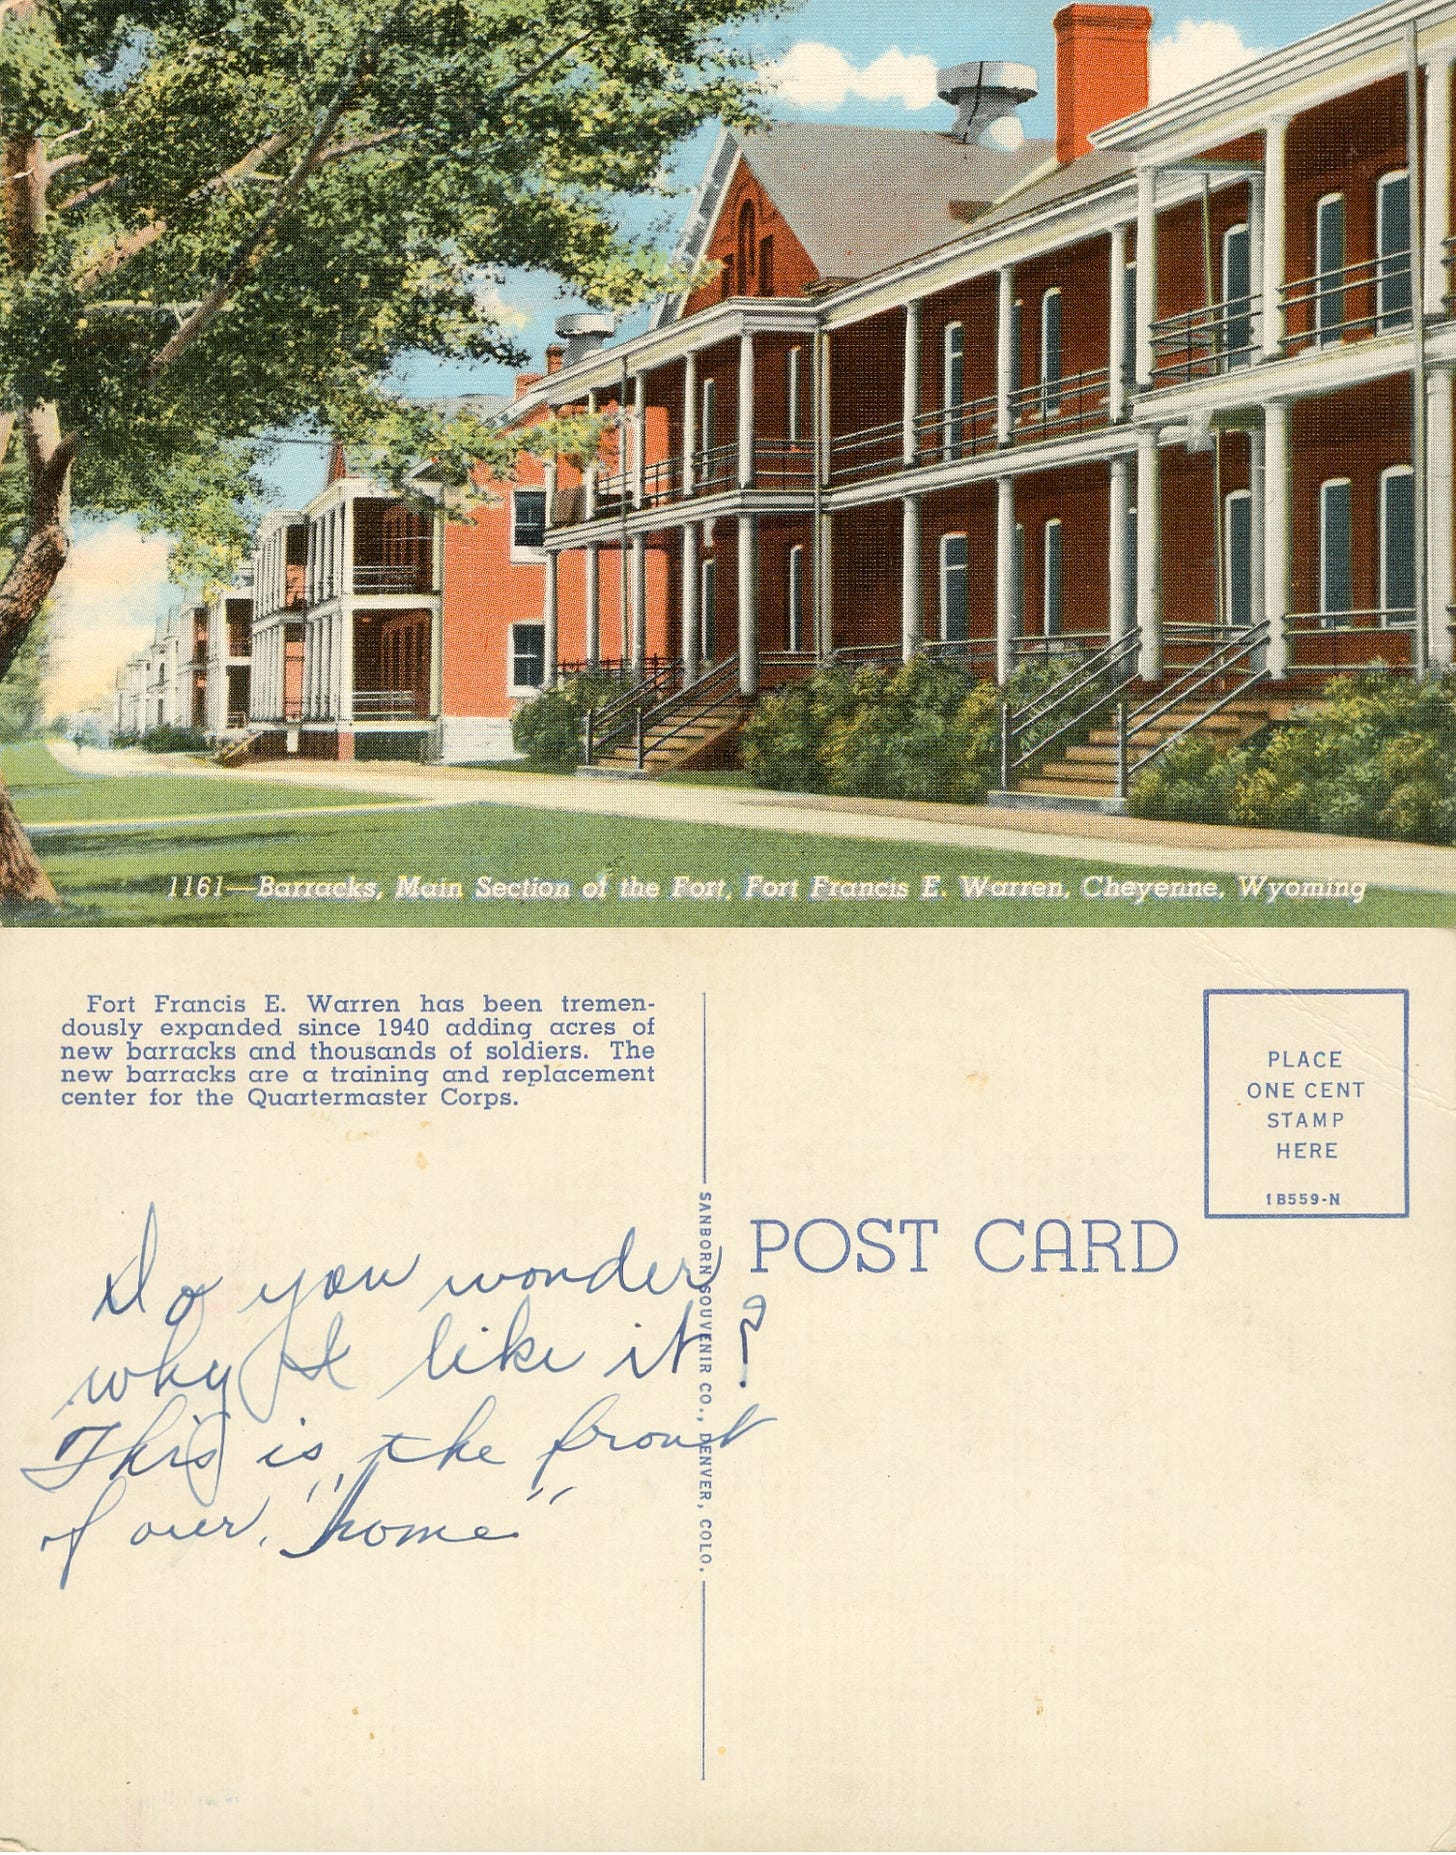 1161—Barracks, Main Section of the Fort, Fort Francis E. Warren, Cheyenne, Wyoming
Fort Francis E. Warren has been tremen-
dously expanded since 1940 adding acres of
new barracks and thousands of soldiers. The
new barracks are a training and replacement
center for the Quartermaster Corps.
PLACE
ONE CENT
STAMP
HERE
1B559-N
POST CARD
SANBORN SOUVENIR CO., DENVER, COLO.
Do you wonder
why I like it?
This is the front
of our "home"